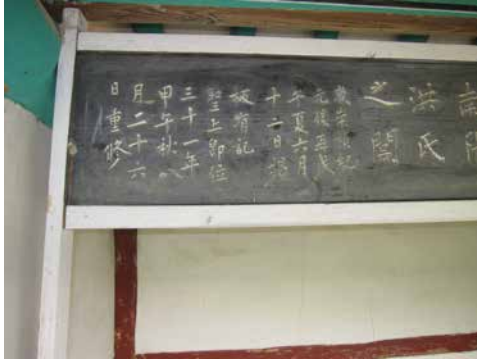 南陽
洪氏
之閭
歲崇禎紀
元後再戊
午夏六月
十二日揭
板有記
聖上卽位
三十一年
甲午秋八
月二十六
日重修